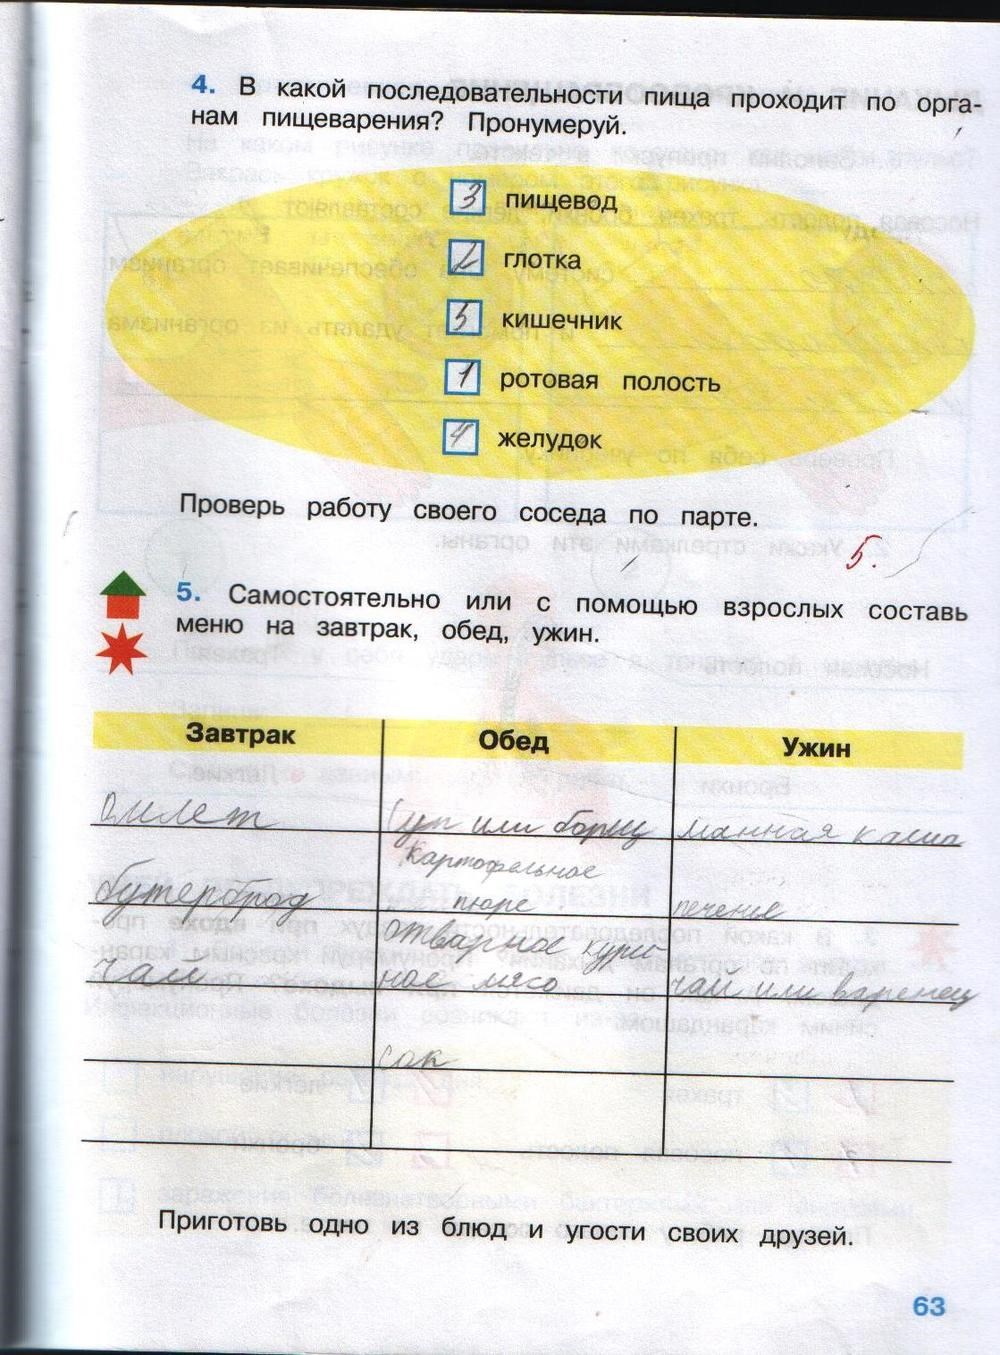 4. В какой последовательности пища проходит по орга-
нам пищеварения? Пронумеруй.
3 пищевод
2 глотка
5 кишечник
1 ротовая полость
4 желудок
Проверь работу своего соседа по парте.
5.
5. Самостоятельно или с помощью взрослых составь
меню на завтрак, обед, ужин.
Завтрак Обед Ужин
омлет суп или борщ манная каша
картофельное
бутерброд пюре печенье
отварное кури-
чай ное мясо чай или варенец
сок
Приготовь одно из блюд и угости своих друзей.
63